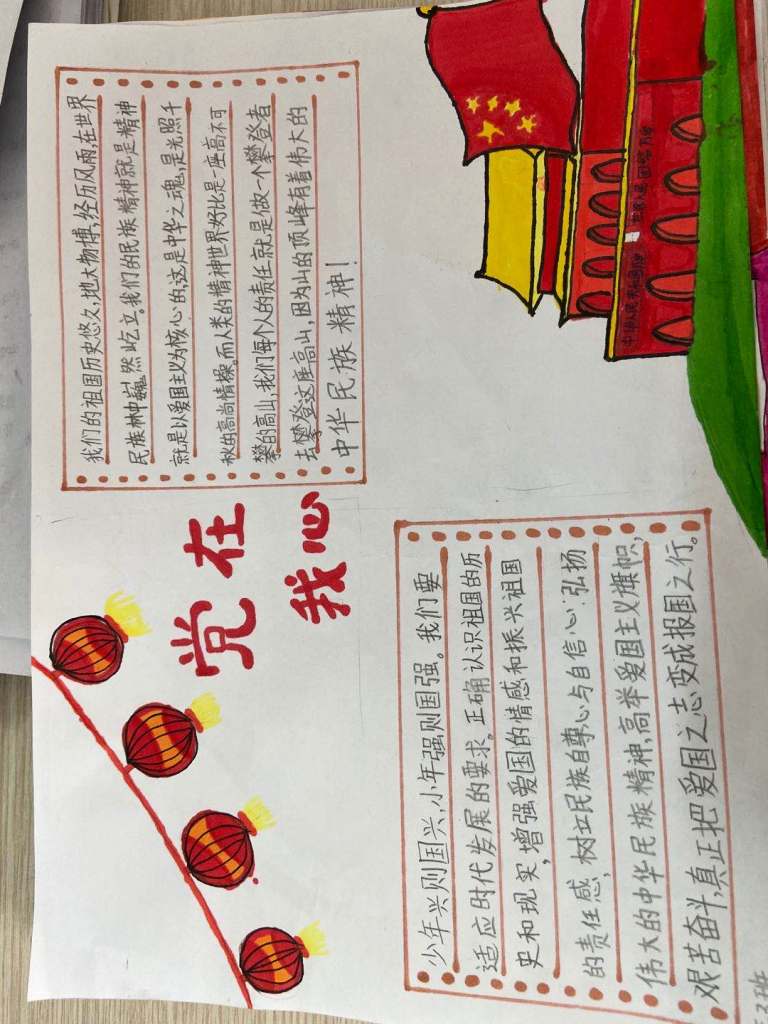 党在
我心
少年兴则国兴,小年强则国强。我们要
适应时代发展的要求.正确认识祖国的历
史和现实,增强爱国的情感和振兴祖国
的责任感,树立民族自尊心与自信心.弘扬
伟大的中华民族精神,高举爱国主义旗帜,
艰苦奋斗,真正把爱国之志变成报国之行。
我们的祖国历史悠久,地大物博,经历风雨,在世界
民族林中巍然屹立.我们的民族精神就是精神
就是以爱国主义为核心的,这是中华之魂,是光照千
秋的高尚情操。而人类的精神世界好比是一座高不可
攀的高山,我们每个人的责任就是做一个攀登者
去攀登这座高山,因为山的顶峰有着伟大的
中华民族精神!
中华人民共和国万岁 世界人民团结万岁